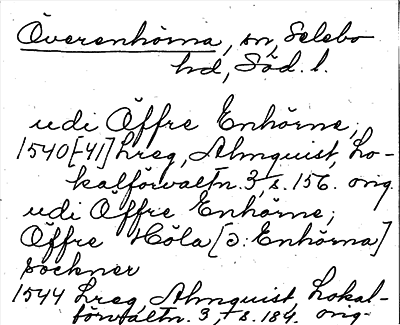 Överenhörna, sn, Selebo
hd, Söd. l.
udi Öffre Enhörne,
1540[-41] Lreg, Almquist, Lo-
kalförvaltn. 3, s. 156. orig.
udi Öffre Enhörne;
Öffre Höla [ɔ: Enhörna]
sockner
1544 Lreg, Almquist, Lokal-
förvaltn. 3, s. 184. orig.